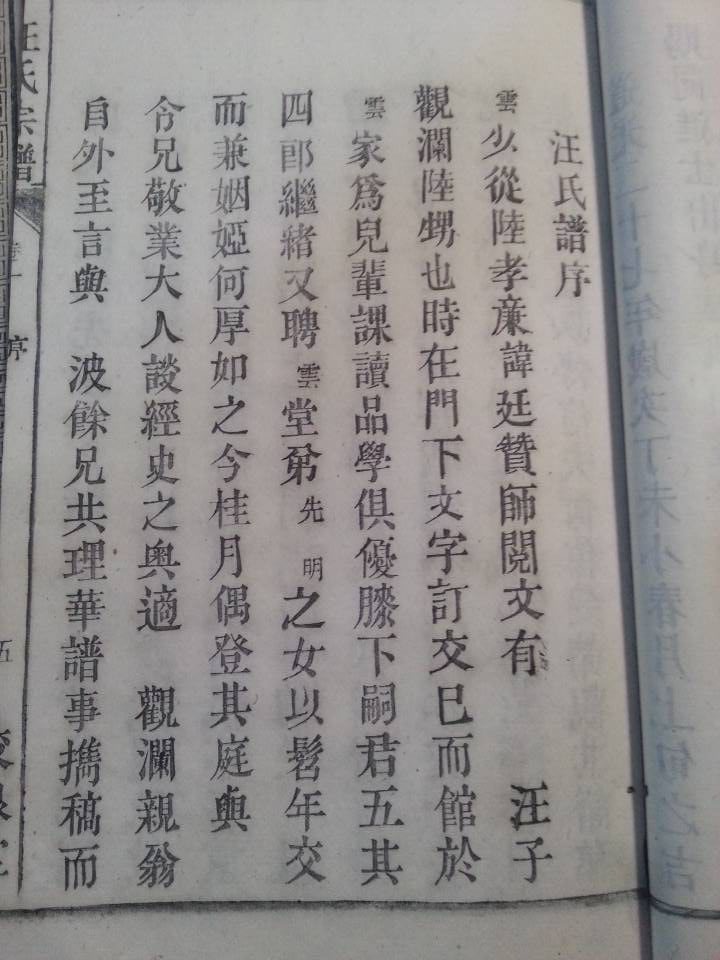 汪氏譜序
雲少從陸孝亷諱廷贊師閱文有 汪子
觀瀾陸甥也時在門下文字訂交巳而館於
雲家爲兒輩課讀品學俱優膝下嗣君五其
四郎繼緒又聘雲堂弟先明之女以髫年交
而兼姻婭何厚如之今桂月偶登其庭與
令兄敬業大人談經史之奧適 觀瀾親翁
自外至言與 波餘兄共理華譜事携稿而
汪氏宗譜 卷一 序 五